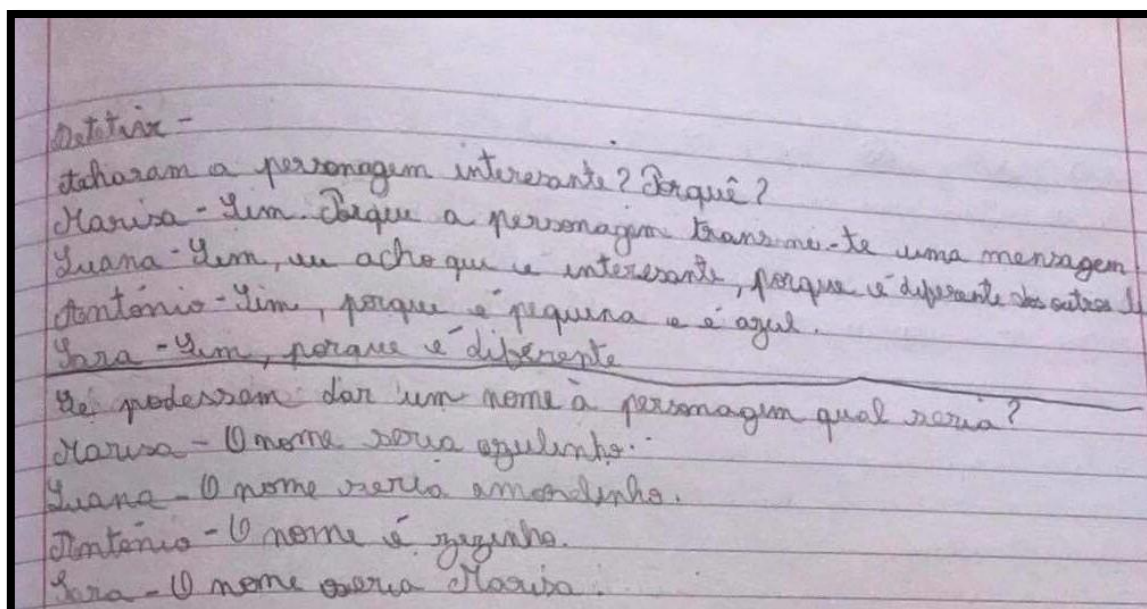 Detetive -
Acharam a personagem interesante? Porquê?
Marisa - Sim. Porque a personagem trans-mi-te uma mensagem!
Luana - Sim, eu acho que é interesante, porque é diferente dos outros!
António - Sim, porque é pequena e é azul.
Sara - Sim, porque é diferente
Se podessem dar um nome à personagem qual seria?
Marisa - O nome seria azulinho.
Luana - O nome seria
António - O nome é zezinho.
Sara - O nome seria Marisa.